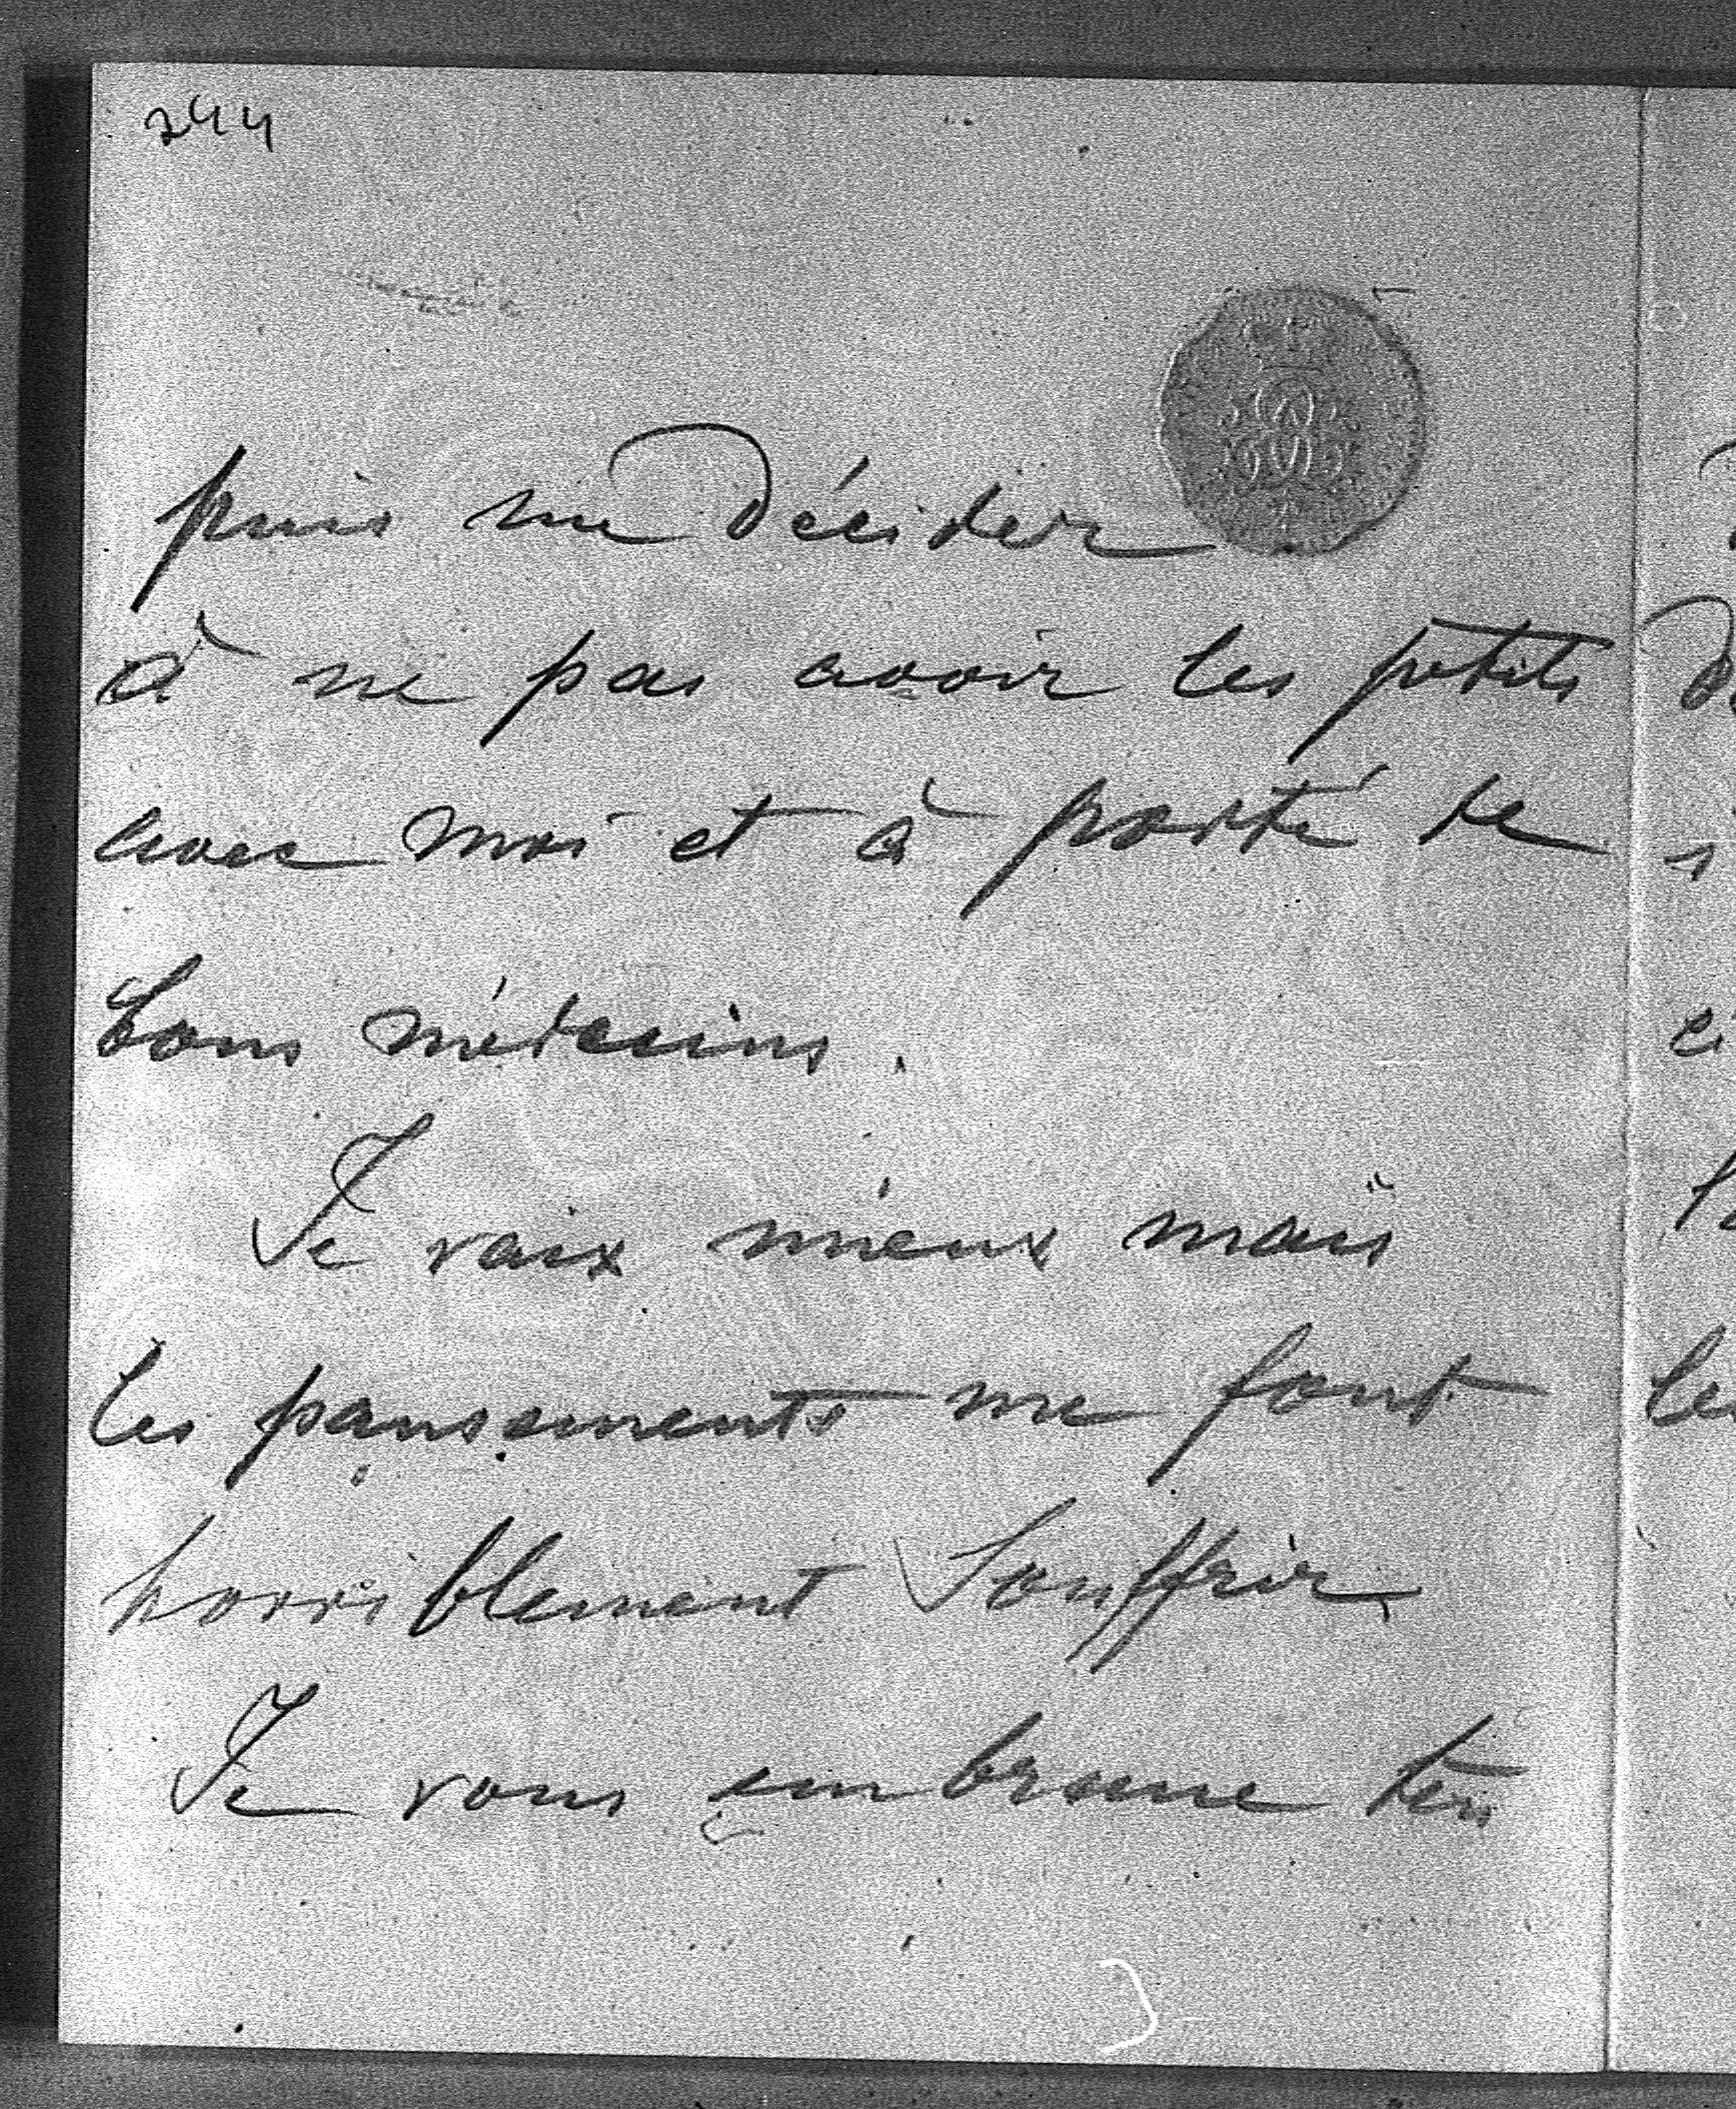 244
puis me décider
à ne pas avoir les petits
avec moi et à porté de
bons médecins.
Je vaix mieux mais
les pansements me font
horriblement souffrir
Je vous embrasse ten